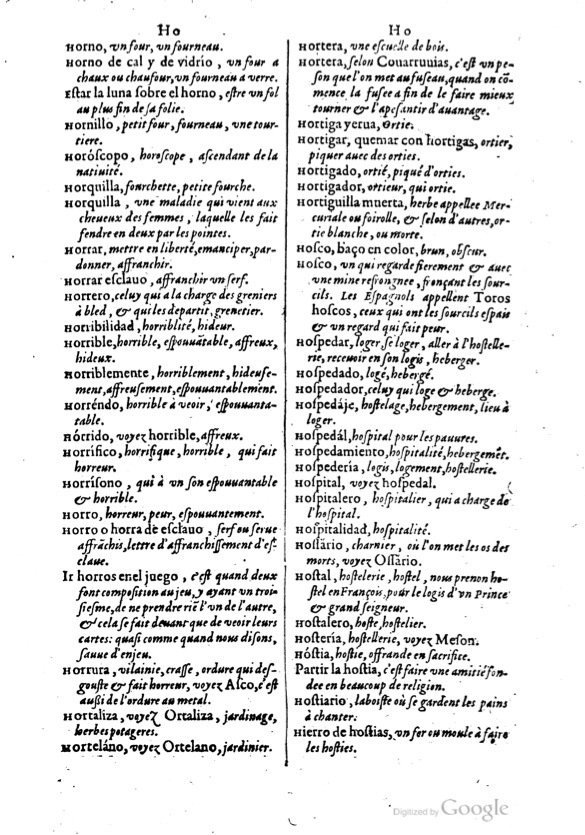 Ho
Horno, vn four, vn fourneau.
Horno de cal y de vidrio, vn four a
chaux ou chaufour, vn fourneau a verre.
Estar la luna sobre el horno, estre vn fol
au plus fin de sa folie.
Hornillo, petit four, fourneau, vne tour-
tiere.
Horóscopo, horoscope, ascendant de la
natiuité.
Horquilla, fourchette, petite fourche.
Horquilla, vne maladie qui vient aux
cheueux des femmes, laquelle les fait
fendre en deux par les pointes.
Horrar, mettre en liberté, emanciper, par-
donner, affranchir.
Horrar esclauo, affranchir vn serf.
Horrero, celuy qui a la charge des greniers
à bled, & qui les departit, grenetier.
Horribilidad, horriblité, hideur.
Horrible, horrible, espouuãtable, affreux,
hideux.
Horriblemente, horriblement, hideuse-
ment, affreusement, espouuantablement.
Horréndo, horrible à veoir, espouuanta-
table.
Hórrido, voyez horrible, affreux.
Horrífico, horrifique, horrible, qui fait
horreur.
Horrísono, qui à vn son espouuantable
& horrible.
Horro, horreur, peur, espouuantement.
Horro o horra de esclauo, serf ou serue
affrãchis, lettre d'affranchissement d'es-
claue.
Ir horros en el juego, c'est quand deux
font composition au jeu, y ayant vn troi-
siesme, de ne prendre riẽ l'vn de l'autre,
& cela se fait deuant que de veoir leurs
cartes: quasi comme quand nous disons,
sauue d'enjeu.
Horrura, vilainie, crasse, ordure qui des-
gouste & fait horreur, voyez Asco, c'est
aussi de l'ordure au metal.
Hortaliza, voyez Ortaliza, jardinage,
herbes potageres.
Horteláno, voyez Ortelano, jardinier.
Ho
Hortera, vne escuelle de bois.
Hortera, selon Couarruuias, c'est vn pe-
son que l'on met au fuseau, quand on cõ-
mence la fusee a fin de le faire mieux
tourner & l'apesantir d'auantage.
Hortiga yerua, Ortie.
Hortigar, quemar con hortigas, ortier,
piquer auec des orties.
Hortigado, ortié, piqué d'orties.
Hortigador, ortieur, qui ortie.
Hortiguilla muerta, herbe appellee Mer-
curiale ou foirolle, & selon d'autres, or-
tie blanche, ou morte.
Hosco, baço en color, brun, obscur.
Hosco, vn qui regarde fierement & auec
vne mine refrongnee, fronçant les sour-
cils. Les Espagnols appellent Toros
hoscos, ceux qui ont les sourcils espais
& vn regard qui fait peur.
Hospedar, loger, se loger, aller à l'hostelle-
rie, receuoir en son logis, heberger.
Hospedado, logé, hebergé.
Hospedador, celuy qui loge & heberge.
Hospedáje, hostelage, hebergement, lieu à
loger.
Hospedál, hospital pour les pauures.
Hospedamiento, hospitalité, hebergemẽt.
Hospedería, logis, logement, hostellerie.
Hospital, voyez hospedal.
Hospitalero, hospitalier, qui a charge de
l'hospital.
Hospitalidad, hospitalité.
Hossário, charnier, où l'on met les os des
morts, voyez Ossário.
Hostal, hostelerie, hostel, nous prenon ho-
stel en François, pour le logis d'vn Prince
& grand seigneur.
Hostalero, hoste, hostelier.
Hostería, hostellerie, voyez Meson.
Hóstia, hostie, offrande en sacrifice.
Partir la hostia, c'est faire vne amitié fon-
dee en beaucoup de religion.
Hostiario, la boiste où se gardent les pains
à chanter.
Hierro de hostias, vn fer ou moule à faire
les hosties.
Digitized by Google